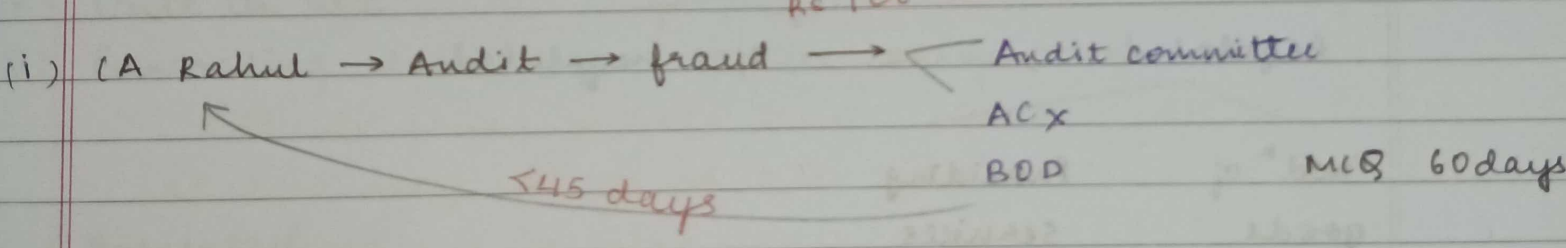 (i) CA Rahul → Audit → fraud → Audit committee
AC x
BOD MCQ 60 days
<45 days